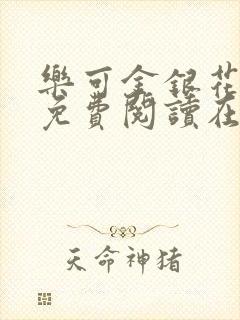 樂可金銀花
免費閱讀在
天命神猪